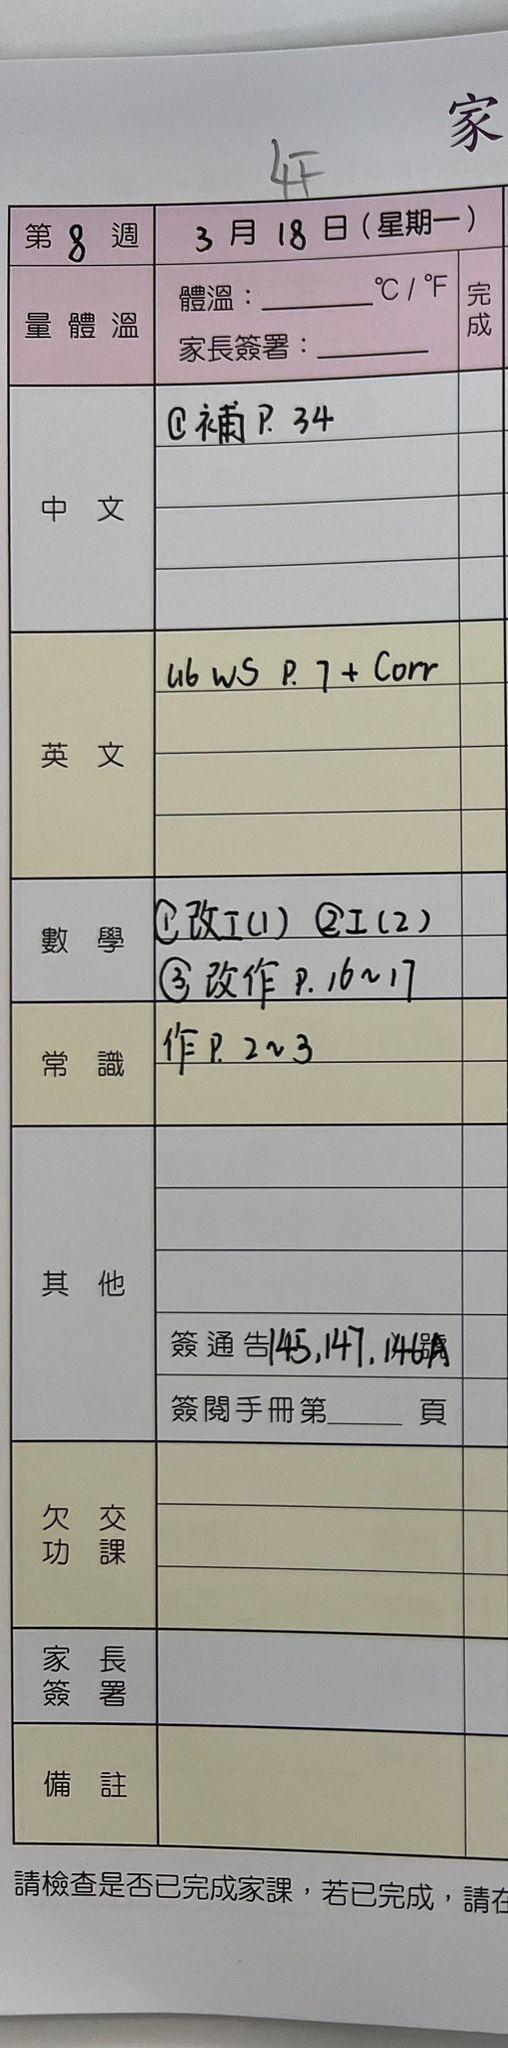 家
4F
第 8 週 3 月 18 日 (星期一)
量體溫 體溫：______°C / °F 完成
家長簽署：______
中文 ① 補 P. 34
英文 U6 WS P. 7 + Corr
數學 ① 改工(1) ② 工(2)
③ 改作 P. 16~17
常識 作 P. 2~3
其他
簽通告 145, 147, 146A 號
簽閱手冊第____頁
欠交功課
家長簽署
備註
請檢查是否已完成家課，若已完成，請在